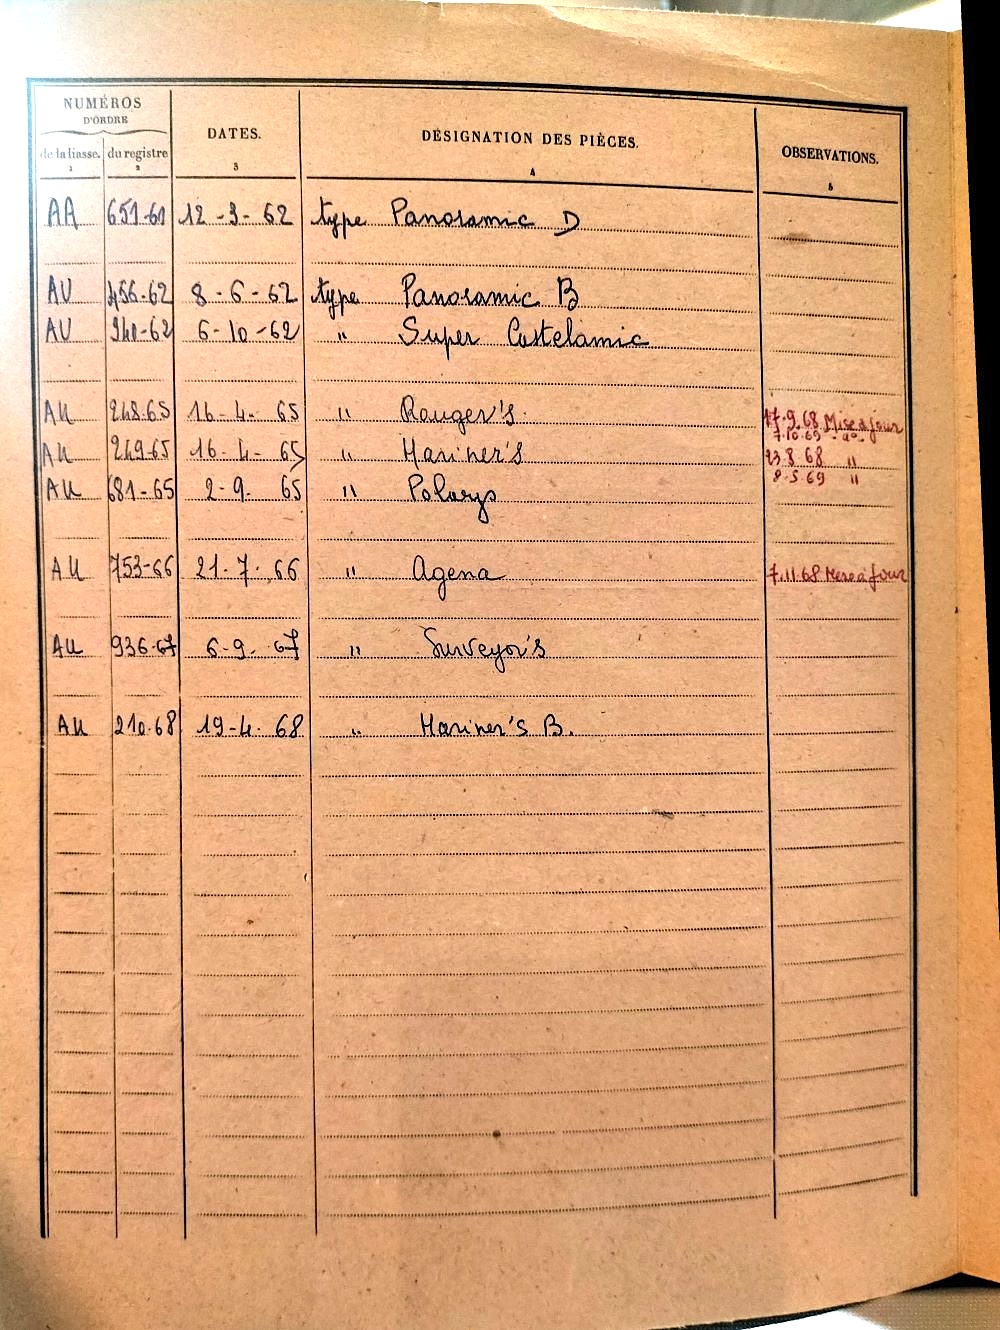 NUMÉROS
D'ORDRE
de la liasse. du registre DATES. DÉSIGNATION DES PIÈCES. OBSERVATIONS.
1 2 3 4 5
AA 651-61 12-3-62 type Panoramic D
AU 456-62 8-6-62 type Panoramic B
AU 940-62 6-10-62 " Super Castelamic
AU 248-65 16-4-65 " Ranger's 17.9.68 Mise à jour
7.10.69 - do -
AU 249-65 16-4-65 " Mariner's 23.8 68 "
8-5.69 "
AU 681-65 2-9-65 " Polarys
AU 753-66 21-7-66 " Agena 7.11.68 Mise à jour
AU 936-67 6-9-67 " Surveyor's
AU 210-68 19-4-68 " Mariner's B.